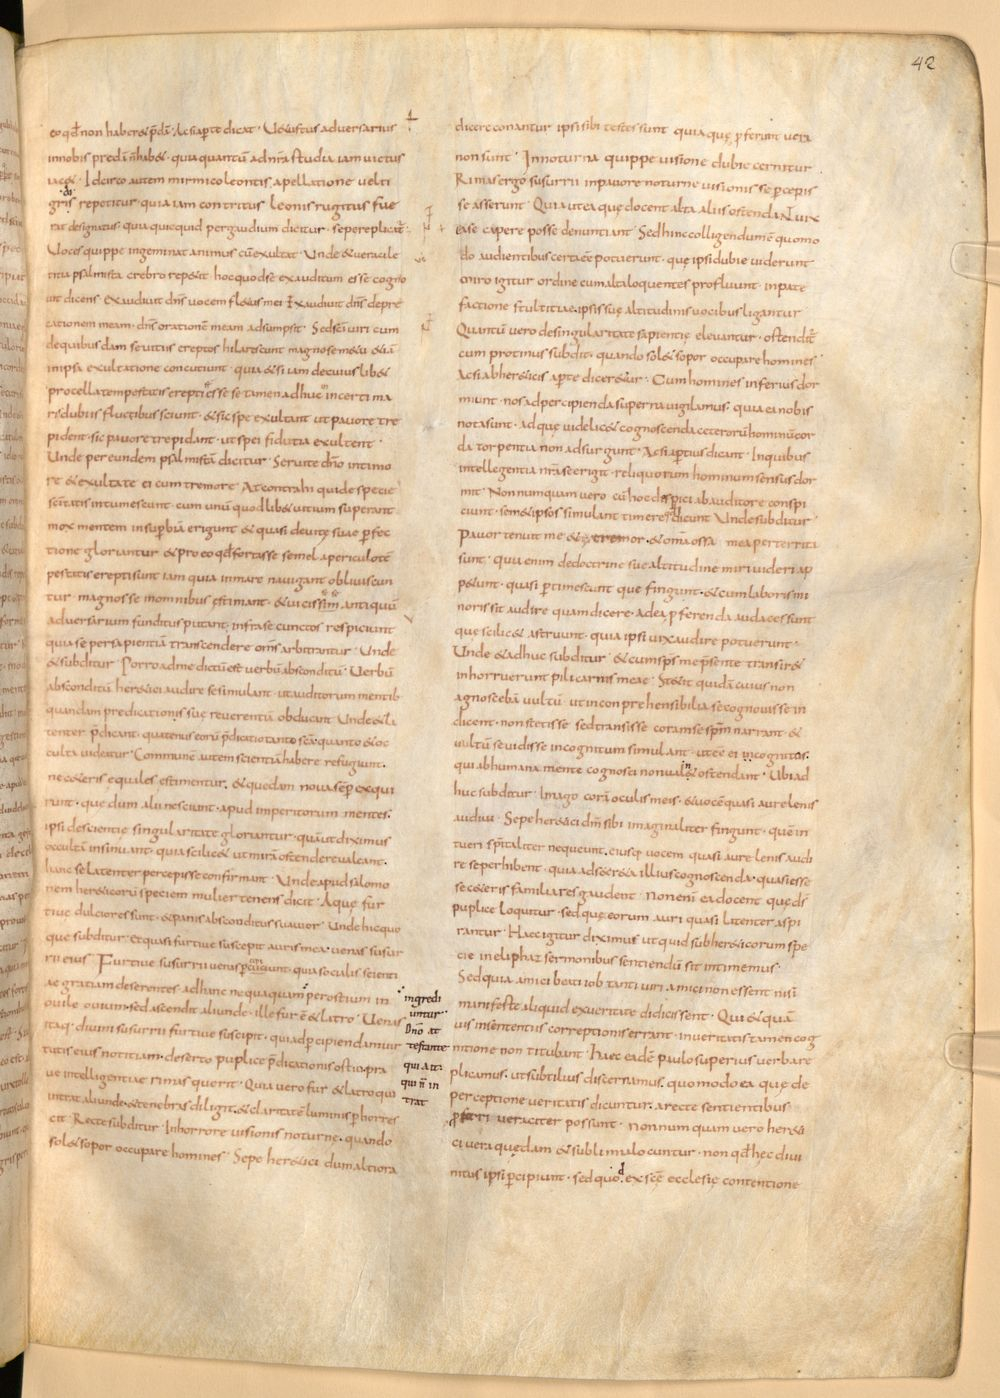 42
eo qđ non haber& p̄dā. Ac si ap̄te dicat. V&ustus adversarius
in nobis predā ñ hab&. quia quantū ad nr̄a studia iam victus
iac&. Idcirco autem mirmicoleontis apellatione vel ti
gris repetitur. quia iam contritus leonis rugitus fue
rat designatus. quia quicquid per gaudium dicitur. sepe replicat̄.
Voces quippe ingeminat animus cū exultat. Unde & vera le
titia psalmista crebro rep&it. hoc quod se exauditum esse cogno
vit dicens. Exaudivit dn̄s vocem fl&us mei. Exaudivit dn̄s depre
cationem meam. dn̄s orationē meam adsumpsit. Sed sc̄i viri cum
de quibusdam se vitiis ereptos hilarescunt. magno se m&u &iā
in ipsa exultatione concutiunt. quia & si iam de cuiuslib&
procella tempestatis erepti esse se tamen adhuc in certi ma
ris dubiis fluctibus sciunt. & sic spe exultant ut pavore tre
pident. sic pavore trepidant. ut spei fidutia exultent.
Unde per eundem psalmistā dicitur. Servite dn̄o in timo
re & exultate ei cum tremore. At contra hi qui de specie
sc̄itatis intumescunt. cum unū quodlib& vitium superant.
mox mentem in sup̄biā erigunt & quasi de vitę suae p̄fec
tione gloriantur & pro eo qđ fortasse semel a periculo tē
pestatis erepti sunt iam quia in mare navigant obliviscun
tur. magnos se in omnibus ęstimant. & vicissim antiquū
adversarium funditus putant. infra se cunctos respiciunt
quia se per sapientiā transcendere om̄s arbitrantur. Unde
& subditur. Porro ad me dictū est verbū absconditū. Verbū
absconditū her&ici audire se simulant. ut auditorum mentib
quandam predicationis suę reverentiā obducant. Unde & la
tenter p̄dicant. quatenus eorū p̄dicatio tanto sc̄a. quanto & oc
culta videatur. Communē autem scientiā habere refugiunt.
ne c&eris equales estimentur. & quedam nova semp̄ exqui
runt. quę dum alii nesciunt. apud imperitorum mentes.
ipsi de scientie singularitate gloriantur. quā ut diximus
occultā insinuant. quia scilic& ut mirā ostendere valeant.
hanc se latenter percepisse confirmant. Unde apud salomo
nem her&icorū speciem mulier tenens dicit. Aquę fur
tivę dulciores sunt. & panis absconditus suavior. Unde hic quo
que subditur. Et quasi furtive suscepit auris mea. venas susur
rii eius. Furtive susurrii venas p̄cipiunt. quia socialis scienti
ae gratiam deserentes. ad hanc nequaquam per ostium in
ovile ovium. sed ascendit aliunde. ille fur ē & latro. Venas
itaq. divini susurrii furtive suscipit. qui ad p̄cipiendam vir
tutis eius notitiam. deserto puplice p̄dicationis ostio. pra
ve intelligentiae rimas querit. Quia vero fur & latro qui
intrat aliunde. & tenebras diligit. & claritatē luminis p̄horres
cit. Recte subditur. In horrore visionis noturnę. quando
sol& sopor occupare homines. Sepe her&ici dum altiora
ingredi
untur.
Dn̄o at
testante
qui ait.
qui n̄ in
trat
dicere conantur ipsi sibi testes sunt quia quę p̄ferunt vera
non sunt. In noturna quippe visione dubie cernitur.
Rimas ergo susurrii in pavore noturne visionis se p̄cepis
se asserunt. Quia ut ea quę docent alta aliis ostendaNt vix
ea se capere posse denuntiant. Sed hinc colligendum ē quomo
do audientibus certa eē potuerunt. quę ipsi dubie viderunt.
Miro igitur ordine cum alta loquentes profluunt. in pate
factione stultitiae. ipsis suę altitudinis vocibus ligantur.
Quantū vero de singularitate sapientię elevantur. ostendit̄
cum protinus subdit. quando sol& sopor occupare homines.
Ac si ab her&icis ap̄te dicer&ur. Cum homines inferius dor
miunt. nos ad percipienda superna vigilamus. quia ea nobis
nota sunt. ad quę videlic& cognoscenda ceterorū hominū cor
da torpentia non adsurgunt. Ac si ap̄tius dicant. In quibus
intellegentia nr̄a se erigit. reliquorum hominum sensus dor
mit. Nonnumquam vero cū hoc despici ab auditore conspi
ciunt. sem& ipsos simulant timere. dicunt. Unde subditur.
Pavor tenuit me & tremor. & omīa ossa mea perterrita
sunt. Quia enim de doctrine sue altitudine miri videri ap
p&unt. quasi p̄timescunt que fingunt. & cum laboris mi
noris sit audire quam dicere. ad ea p̄ferenda audaces sunt
que scilic& aserunt. quia ipsi vix audire potuerunt.
Unde & adhuc subditur. & cum sp̄s me p̄sente transir&
inhorruerunt pili carnis meae. St&it quidā cuius non
agnoscebā vultū. ut inconprehensibilia se cognovisse in
dicent. non stetisse sed transisse coram se sp̄m narrant. &
vultū se vidisse incognitum simulant. ut eē ei incognitos.
qui ab humana mente cognosci non val& ostendant. Ubi ad
huc subditur. Imago corā oculis meis. & vocē quasi aure lenis
audivi. Sepe her&ici dm̄ sibi imaginaliter fingunt. quē in
tueri sp̄italiter nequeunt. eiusq. vocem quasi aure lenis audi
re se perhibent. quia ad secr&a illius cognoscenda. quasi esse
se c&eris familiares gaudent. Non enī ea docent quę dŝ
puplice loquitur. sed quę eorum auri quasi litenter aspi
rantur. Haec igitur diximus ut quid sub her&icorum spe
cie in eliphaz sermonibus sentiendū sit intimemus.
Sed quia amici beati iob tanti viri amici non essent. nisi
manifeste aliquid ex veritate didicissent. Qui & quā
vis in sententiis correptionis errant. in veritatis tamen cog
nitione non titubant. Haec eadē paulo superius verba re
plicamus. ut subtilius discernamus. quomodo ea quę de
perceptione veritatis dicuntur. a recte sentientibus
p̄ferri veraciter possunt. Nonnumquam vero her&i
ci vera quędam & sublimia locuntur. non qđ hęc divi
nitus ipsi p̄cipiunt. sed quod ex sc̄ę ecclesię contentione